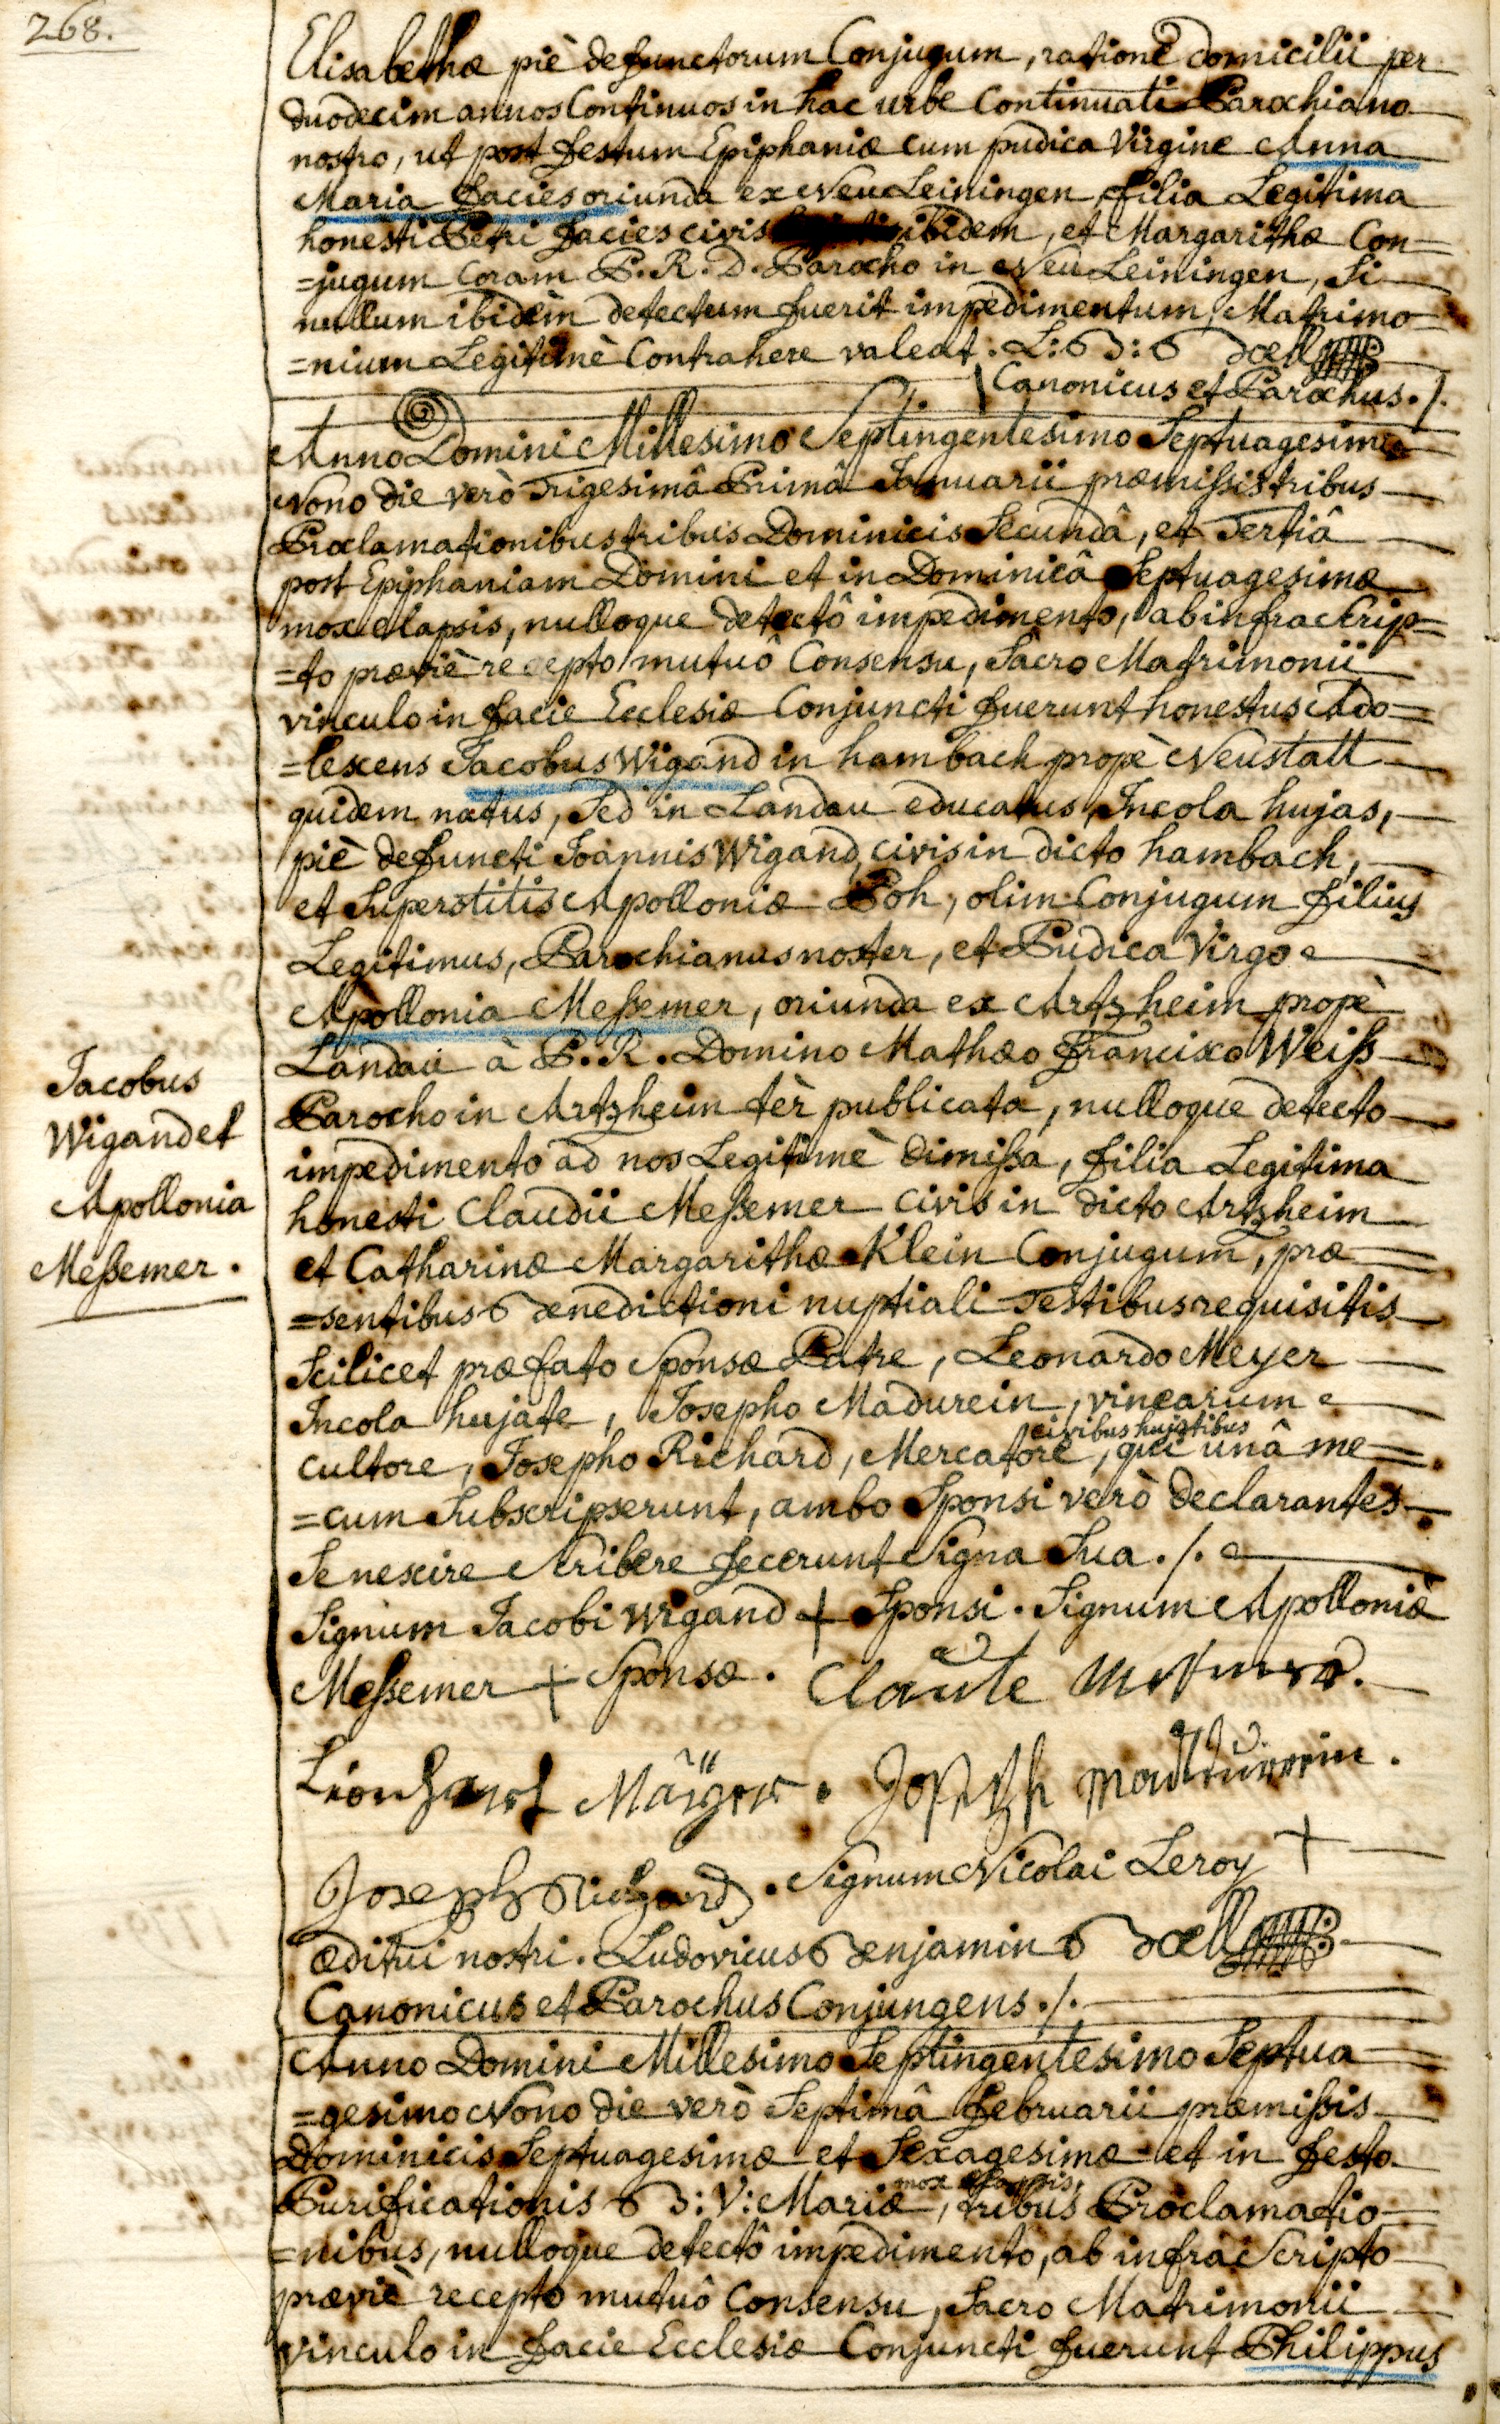 268.
Elisabethæ piè defunctorum Conjugum, ratione domicilii per
duodecim annos Continuos in hac urbe Continuati Parochiano
nostro, ut post festum Epiphaniæ cum pudica Virgine Anna
Maria Facies oriunda ex Neu Leiningen filia Legitima
honesti Petri Facies civis ibidem, et Margarithæ Con=
=jugum Coram P. R. D. Parocho in Neu Leiningen, si
nullum ibidem detectum fuerit impedimentum, Matrimo=
=nium Legitimè Contrahere valeat. L: B: Böell
Canonicus et Parochus ./.
Anno Domini Millesimo Septingentesimo Septuagesimo
Nono die verò Trigesimâ Primâ Januarii præmißis tribus
Proclamationibus tribus Dominicis Secundâ, et Tertiâ
post Epiphaniam Domini et in Dominicâ Septuagesimæ
mox elapsis, nulloque detectô impedimentô, ab infrascrip=
=to præviè recepto mutuô Consensu, Sacro Matrimonii
vinculo in facie Ecclesiæ Conjuncti fuerunt honestus Ado=
=lescens Jacobus Wigand in hambach propè Neustatt
quidem natus, sed in Landau educatus, Incola hujas,
piè defuncti Joannis Wigand, civis in dicto hambach,
et Superstitis Apolloniæ Poh, olim Conjugum filius
Legitimus, Parochianus noster, et Pudica Virgo
Apollonia Meßemer, oriunda ex Artzheim propè
Landau à P. R. Domino Mathæo Francisco Weiß
Parocho in Artzheim tèr publicata, nulloque detecto
impedimento ad nos Legitimè dimißa, filia Legitima
honesti Claudii Meßemer civis in dicto Artzheim
et Catharinæ Margarithæ Klein Conjugum, præ=
=sentibus Benedictioni nuptiali Testibus requisitis
Scilicet præfato Sponsæ Patre, Leonardo Meyer
Incola hujate, Josepho Madurein, vinearum
civibus hujatibus
cultore, Josepho Richard, Mercatore, qui unâ me=
=cum Subscripserunt, ambo Sponsi verò declarantes
Se nescire Scribere fecerunt Signa Sua ./.
Signum Jacobi Wigand + Sponsi. Signum Apolloniæ
Meßemer + Sponsæ. Claute
Lionhart Mäÿer. Joseph Madturrein.
Joseph Richard. Signum Nicolai Leroy +
æditui nostri. Ludovicus Benjamin Böell
Canonicus et Parochus Conjungens ./.
Jacobus
Wigand et
Apollonia
Meßemer.
Anno Domini Millesimo Septingentesimo Septua=
=gesimo Nono die verò Septimâ Februarii præmißis
Dominicis Septuagesimæ et Sexagesimæ et in festo
mox elapsis
Purificationis B: V: Mariæ, tribus Proclamatio=
=nibus, nulloque detectô impedimento, ab infra Scripto
præviè recepto mutuô Consensu, Sacro Matrimonii
vinculo in facie Ecclesiæ Conjuncti fuerunt Philippus